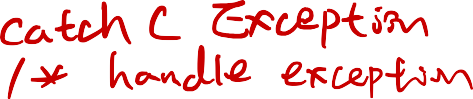 catch C Exception
/* handle exception